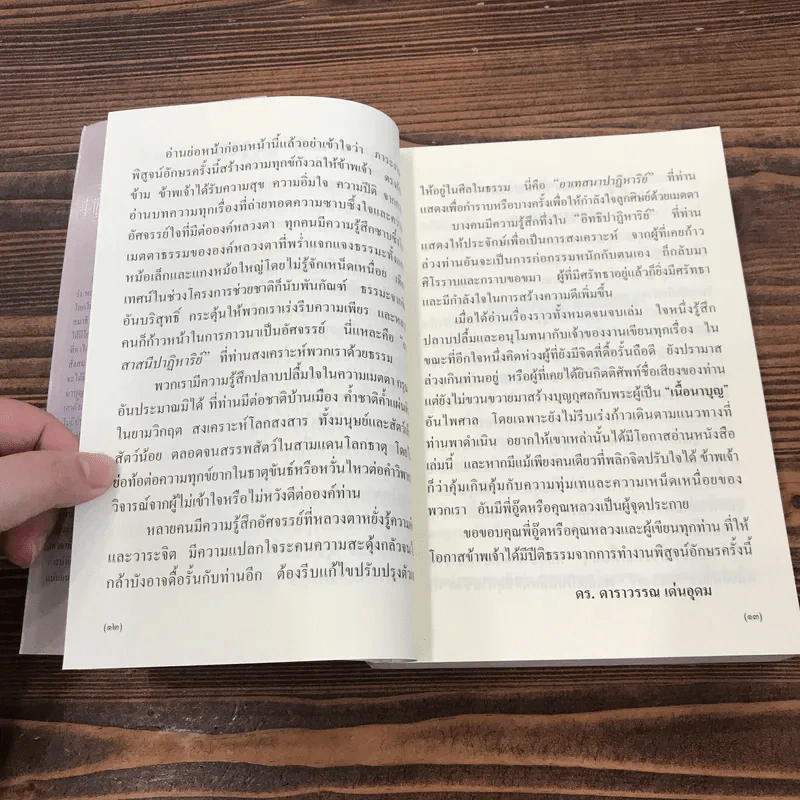 อ่านย่อหน้าก่อนหน้านี้แล้วอย่าเข้าใจว่า ภาระ
พิสูจน์อักษรครั้งนี้สร้างความทุกข์กังวลให้ข้าพเจ้า
ข้าม ข้าพเจ้าได้รับความสุข ความอิ่มใจ ความปีติ
อ่านบทความทุกเรื่องที่ถ่ายทอดความซาบซึ้งใจและ
อัศจรรย์ใจที่มีต่อองค์หลวงตา ทุกคนมีความรู้สึกซาบซึ้ง
เมตตาธรรมขององค์หลวงตาที่พร่ำแจกแจงธรรมะทั้ง
หม้อเล็กและแกงหม้อใหญ่โดยไม่รู้จักเหน็ดเหนื่อย
เทศน์ในช่วงโครงการช่วยชาติก็นับพันกัณฑ์ ธรรมะจาก
อันบริสุทธิ์ กระตุ้นให้พวกเราเร่งรีบความเพียร และ
คนก็ก้าวหน้าในการภาวนาเป็นอัศจรรย์ นี่แหละคือ
สาสนีปาฏิหาริย์” ที่ท่านสงเคราะห์พวกเราด้วยธรรม
พวกเรามีความรู้สึกปลาบปลื้มใจในความเมตตา
อันประมาณมิได้ ที่ท่านมีต่อชาติบ้านเมือง ค้ำชาติค้ำแผ่นดิน
ในยามวิกฤต สงเคราะห์โลกสงสาร ทั้งมนุษย์และสัตว์
สัตว์น้อย ตลอดจนสรรพสัตว์ในสามแดนโลกธาตุ
ย่อท้อต่อความทุกข์ยากในธาตุขันธ์หรือหวั่นไหวต่อคำวิพากษ์
วิจารณ์จากผู้ไม่เข้าใจหรือไม่หวังดีต่อองค์ท่าน
หลายคนมีความรู้สึกอัศจรรย์ที่หลวงตาหยั่งรู้ความ
และวาระจิต มีความแปลกใจระคนความสะดุ้งกลัวจน
กล้าบังอาจดื้อรั้นกับท่านอีก ต้องรีบแก้ไขปรับปรุงตัว
(๑๒)
ให้อยู่ในศีลในธรรม นี่คือ “อาเทสนาปาฏิหาริย์” ที่ท่าน
แสดงเพื่อกำราบหรือบางครั้งเพื่อให้กำลังใจลูกศิษย์ด้วยเมตตา
บางคนมีความรู้สึกทึ่งใน “อิทธิปาฏิหาริย์” ที่ท่าน
แสดงให้ประจักษ์เพื่อเป็นการสงเคราะห์ จากผู้ที่เคยก้าว
ล่วงท่านอันจะเป็นการก่อกรรมหนักกับตนเอง ก็กลับมา
ศิโรราบและกราบขอขมา ผู้ที่มีศรัทธาอยู่แล้วก็ยิ่งมีศรัทธา
และมีกำลังใจในการสร้างความดีเพิ่มขึ้น
เมื่อได้อ่านเรื่องราวทั้งหมดจนจบเล่ม ใจหนึ่งรู้สึก
ปลาบปลื้มและอนุโมทนากับเจ้าของงานเขียนทุกเรื่อง ใน
ขณะที่อีกใจหนึ่งคิดห่วงผู้ที่ยังมีจิตที่ดื้อรั้นถือดี ยังปรามาส
ล่วงเกินท่านอยู่ หรือผู้ที่เคยได้ยินกิตติศัพท์ชื่อเสียงของท่าน
แต่ยังไม่ขวนขวายมาสร้างบุญกุศลกับพระผู้เป็น “เนื้อนาบุญ”
อันไพศาล โดยเฉพาะยังไม่รีบเร่งก้าวเดินตามแนวทางที่
ท่านพาดำเนิน อยากให้เขาเหล่านั้นได้มีโอกาสอ่านหนังสือ
เล่มนี้ และหากมีแม้เพียงคนเดียวที่พลิกจิตปรับใจได้ ข้าพเจ้า
ก็ว่าคุ้มเกินคุ้มกับความทุ่มเทและความเหน็ดเหนื่อยของ
พวกเรา อันมีพี่อู๊ดหรือคุณหลวงเป็นผู้จุดประกาย
ขอขอบคุณพี่อู๊ดหรือคุณหลวงและผู้เขียนทุกท่าน ที่ให้
โอกาสข้าพเจ้าได้มีปีติธรรมจากการทำงานพิสูจน์อักษรครั้งนี้
ดร. ดาราวรรณ เด่นอุดม
(๑๓)